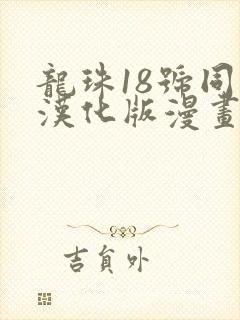 龍珠18號同
漢化版漫畫
吉貟外